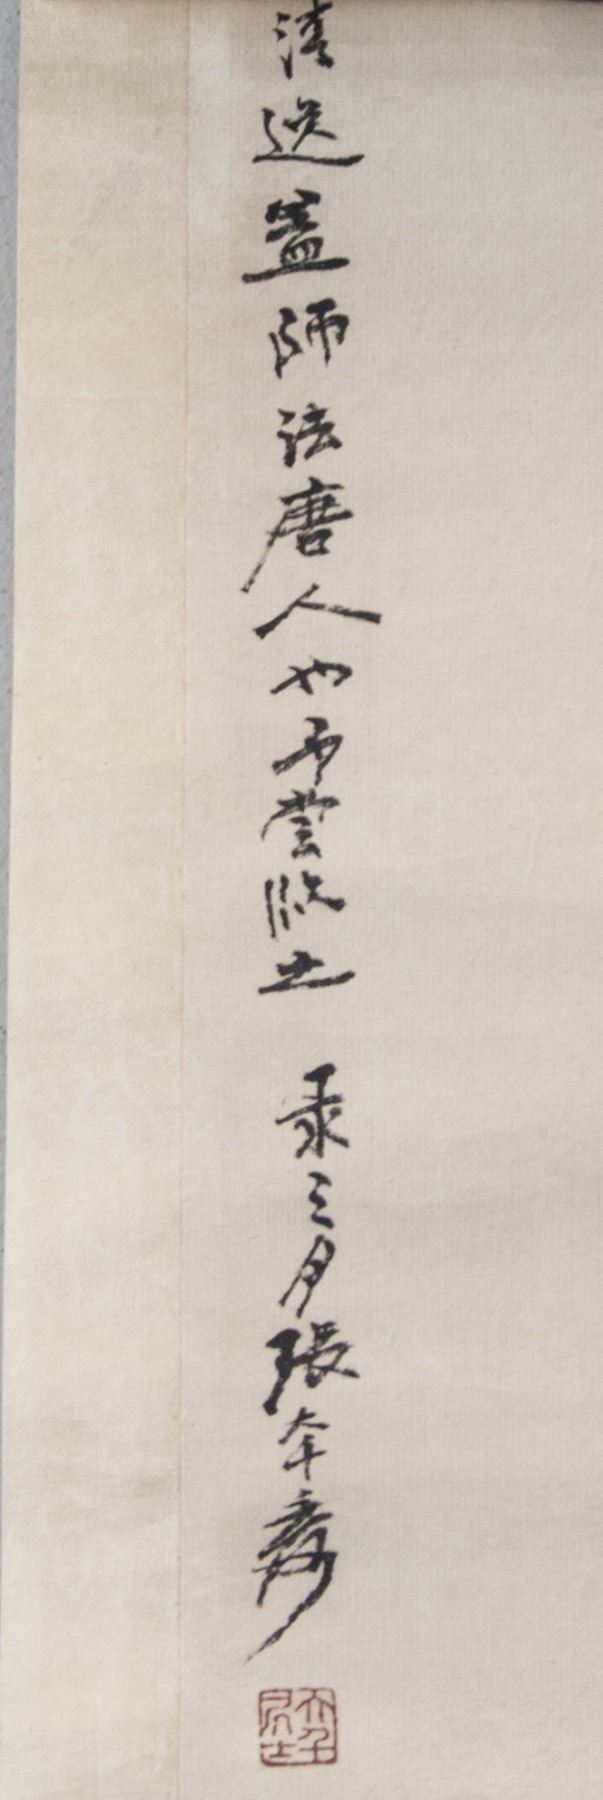 清逸蓋師法唐人也予嘗臨之 三月張大千爰
大千居士